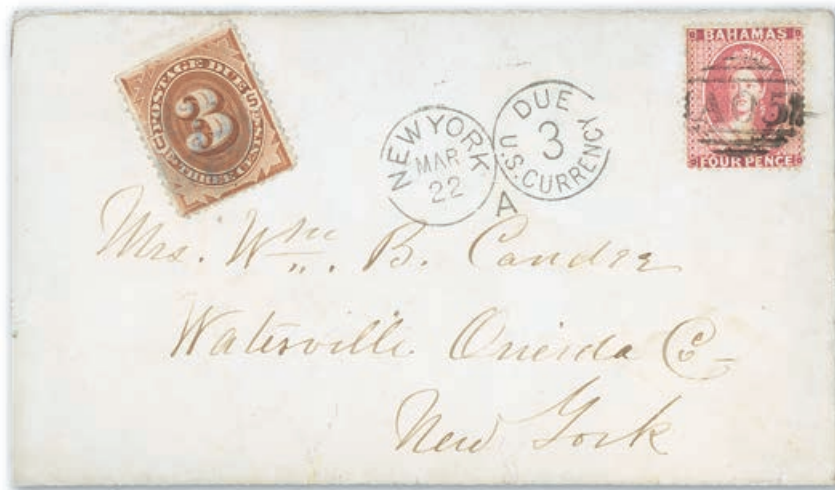 POSTAGE DUE
3
THREE CENTS
NEW YORK
MAR
22
DUE
3
U.S. CURRENCY
A
BAHAMAS
A05
FOUR PENCE
Mrs. Wm. B. Candee
Waterville. Oneida Co
New York